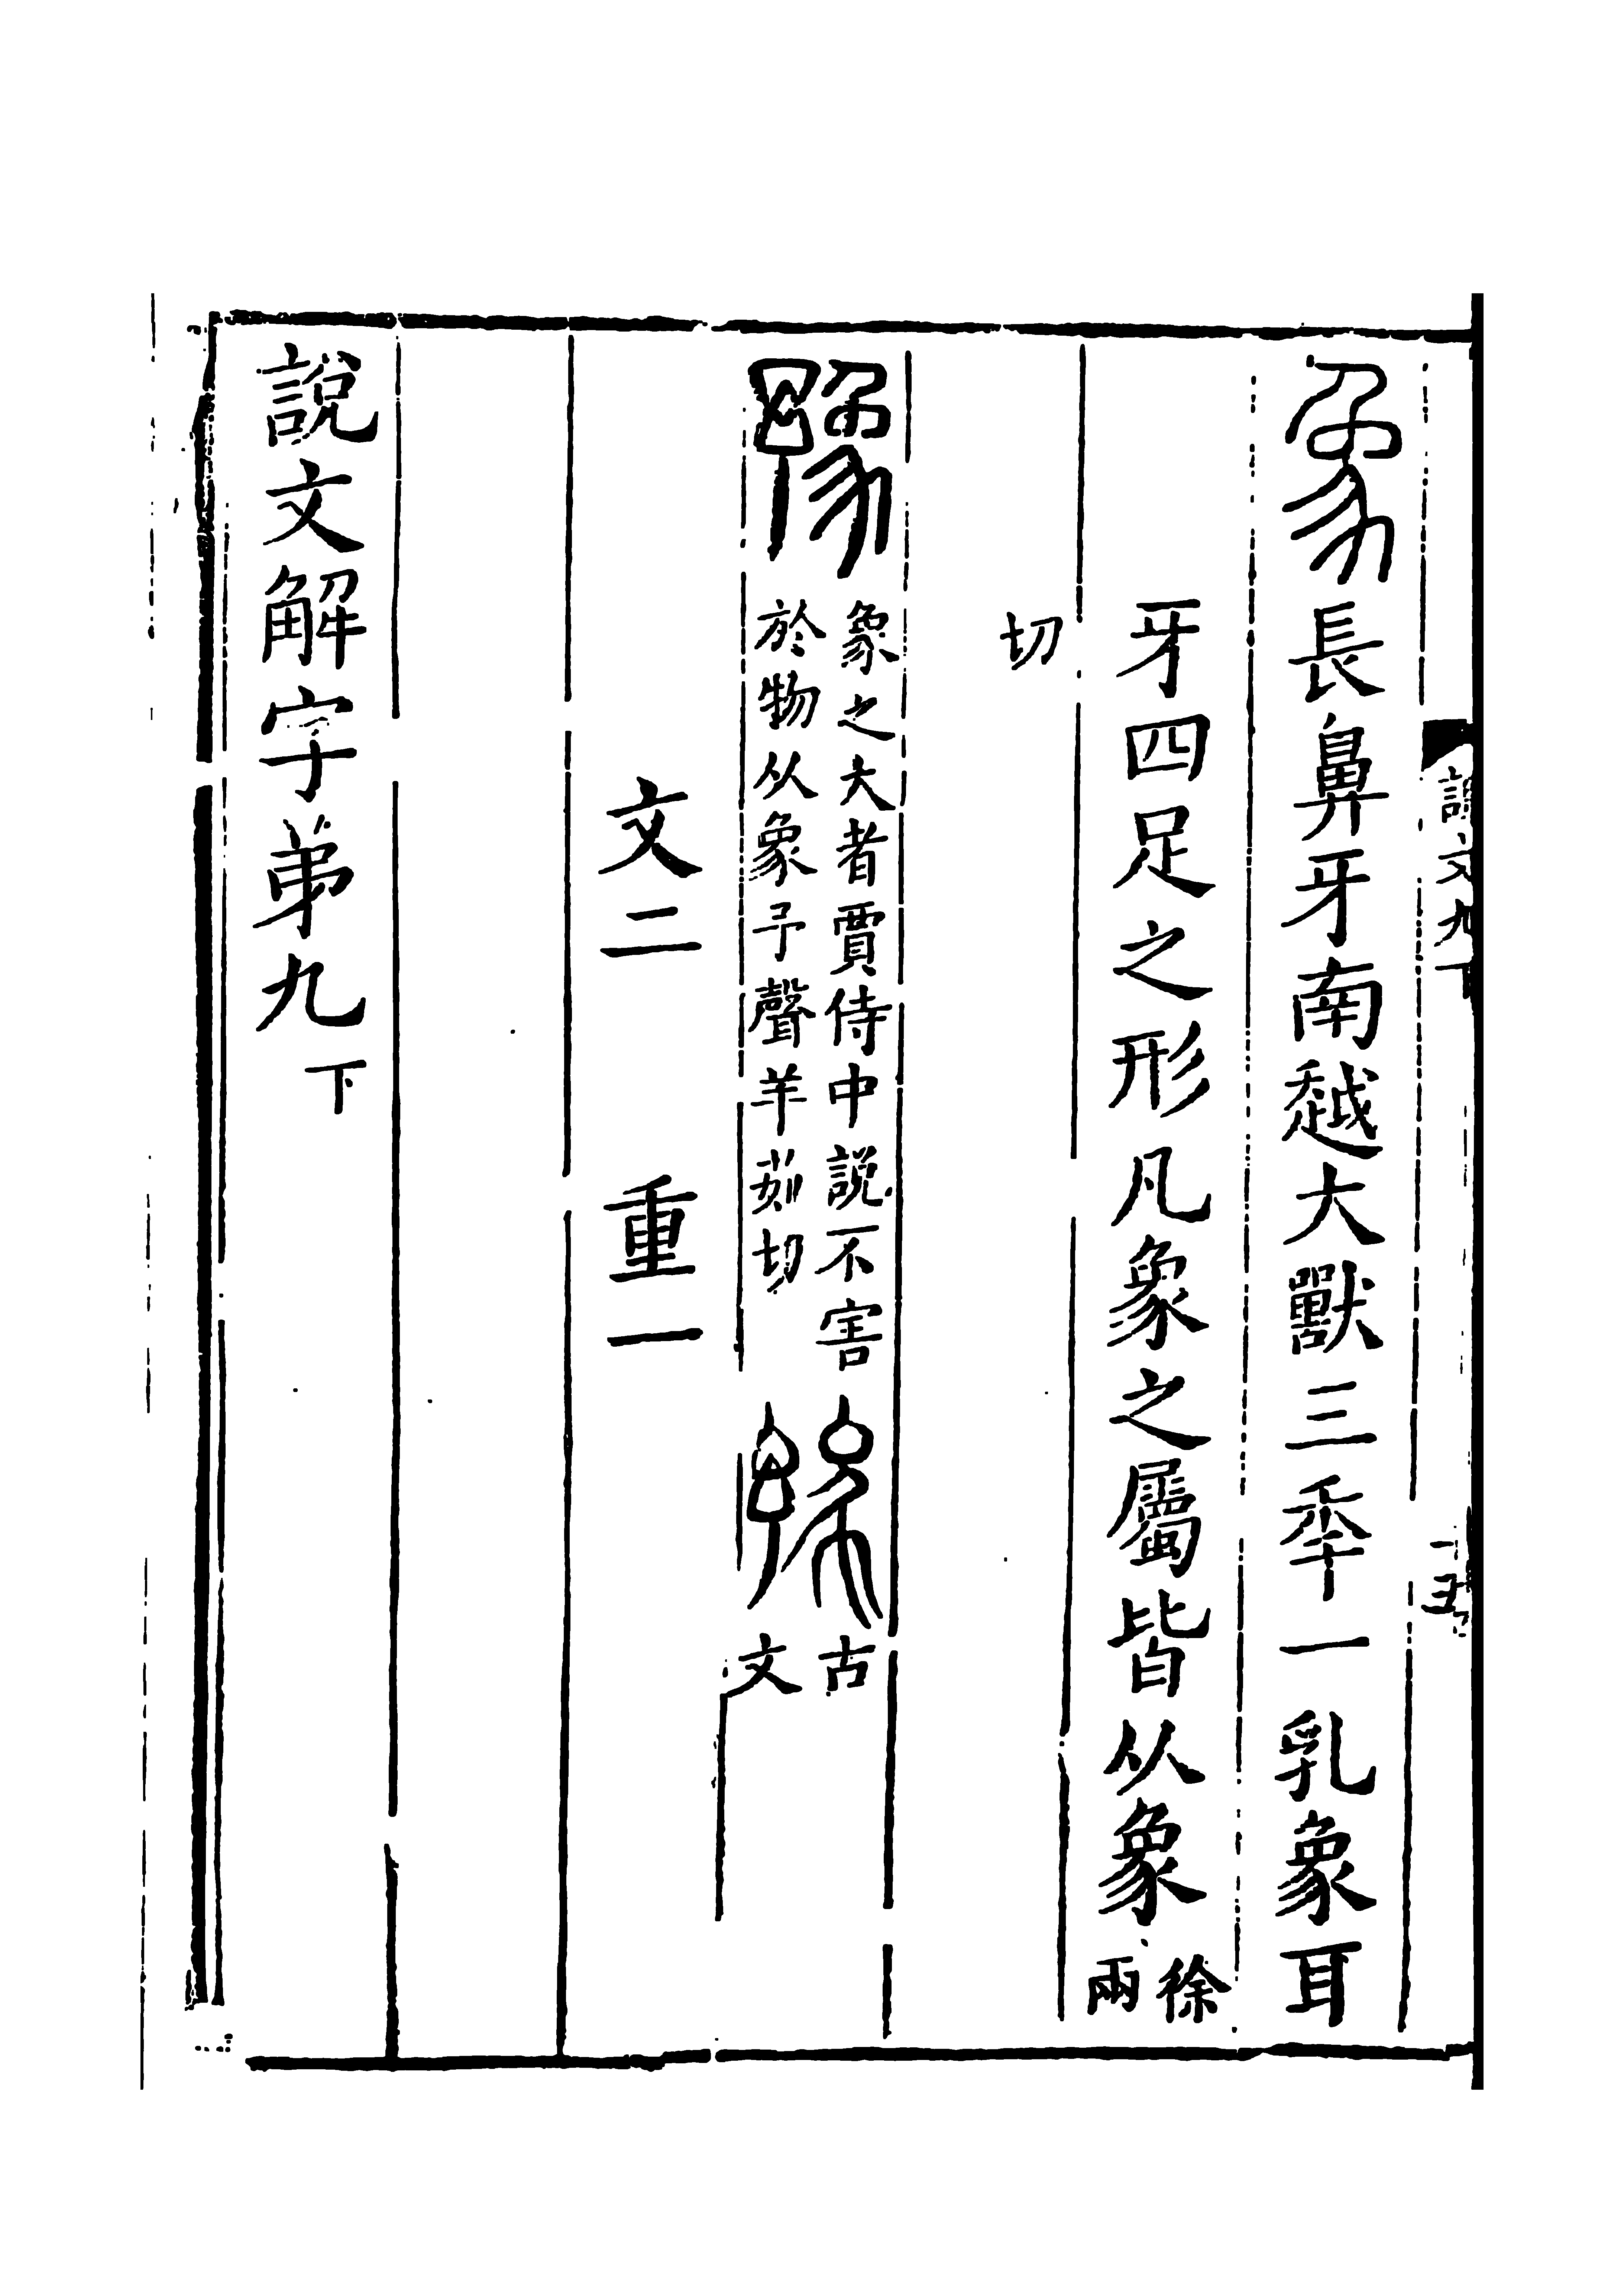 說文九下
一五
象長鼻牙南越大獸三秊一乳象耳
牙四足之形凡象之屬皆从象徐兩
切
豫象之大者賈侍中說不害
於物从象予聲羊茹切
古
文
文二 重一
說文解字弟九下